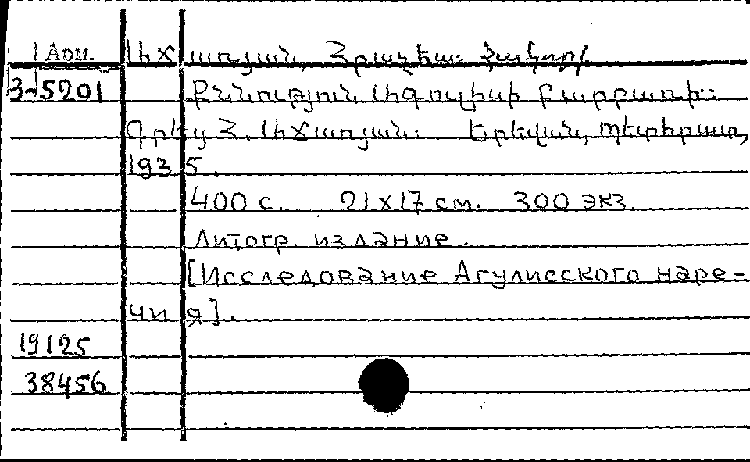 1 Арм. Աճառյան, Հրաչեա Հակոբի
3-5201 Քննություն Ագուլիսի բարբառի։
Գրեց Հ. Աճառյան։ Երևան, Պետհրատ,
1935.
400 с. 21x17 см. 300 экз.
Литогр. издание.
[Исследование Агулисского наре-
чия].
19125
38456